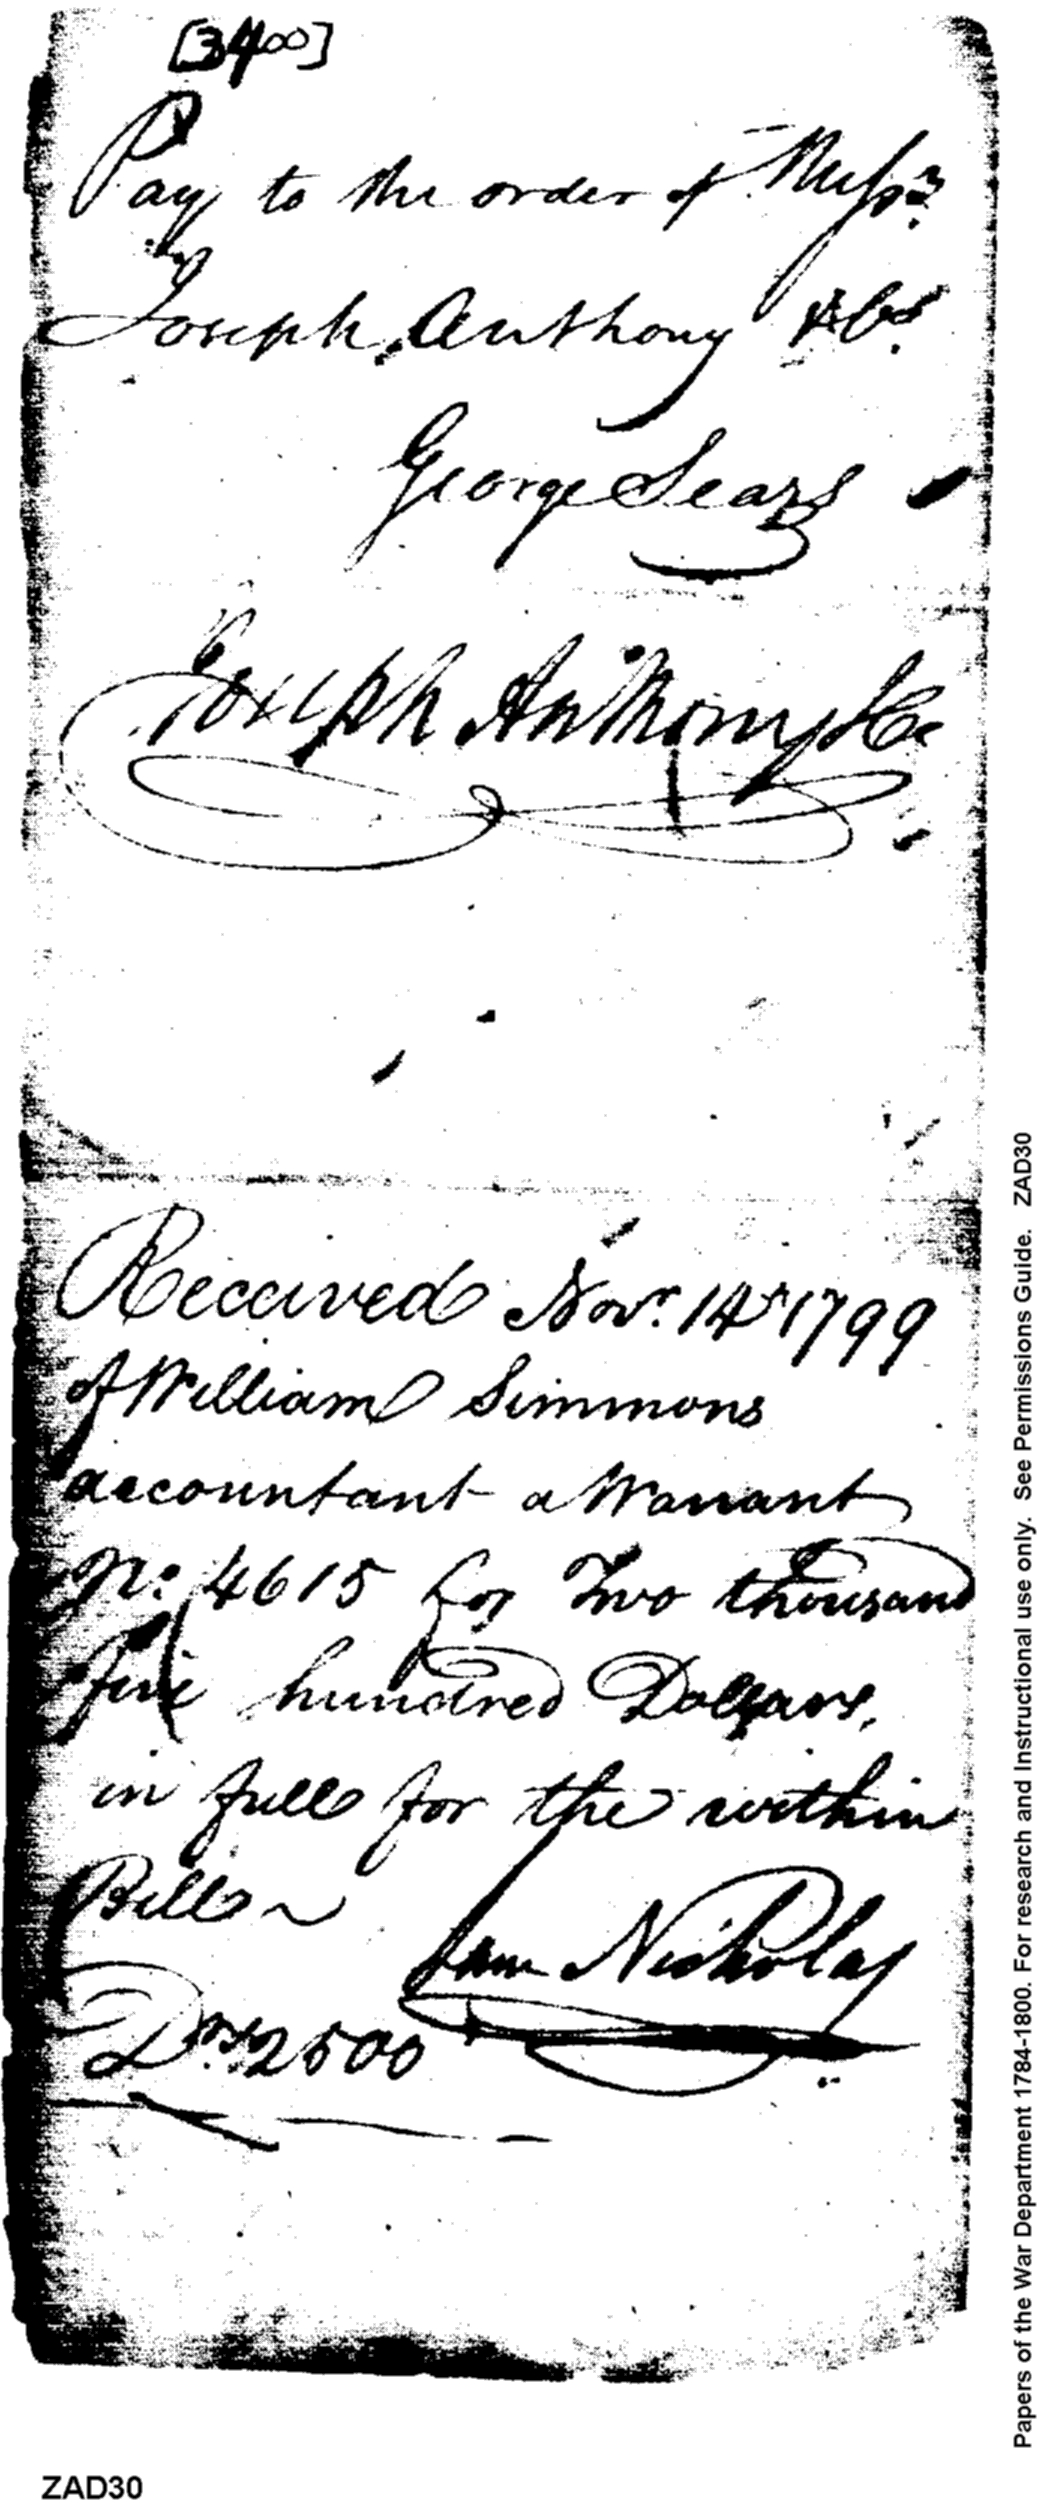 [3400]
Pay to the order of Messrs.
Joseph Anthony & Co.
George Sears
Joseph Anthony & Co
Received Novr. 14th 1799
of William Simmons
accountant a Warrant
No: 4615 for Two thousand
five hundred Dollars,
in full for the within
Bill
Sam Nicholas
Drs 2500
Papers of the War Department 1784-1800. For research and Instructional use only. See Permissions Guide. ZAD30
ZAD30